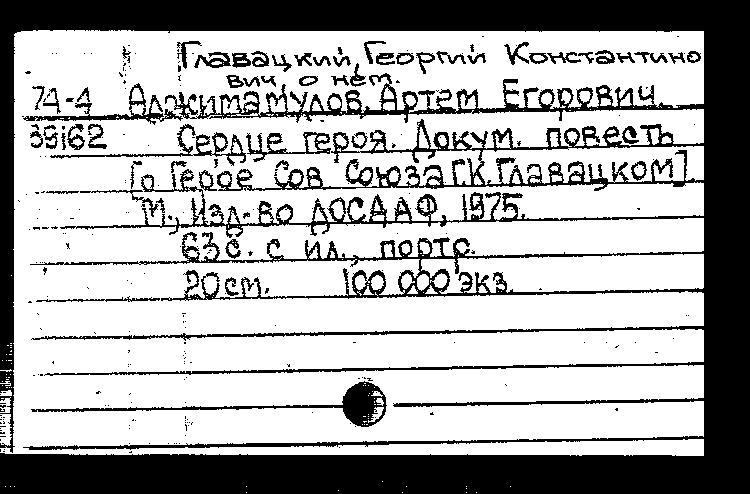 Главацкий, Георгий Константино
вич, о нем.
74-4 Аджимамулов, Артем Егорович.
39162 Сердце героя. Докум. повесть
[о Герое Сов Союза Г.К. Главацком]
М., Изд-во ДОСААФ, 1975.
63 с. с ил., портр.
20 см. 100 000 экз.